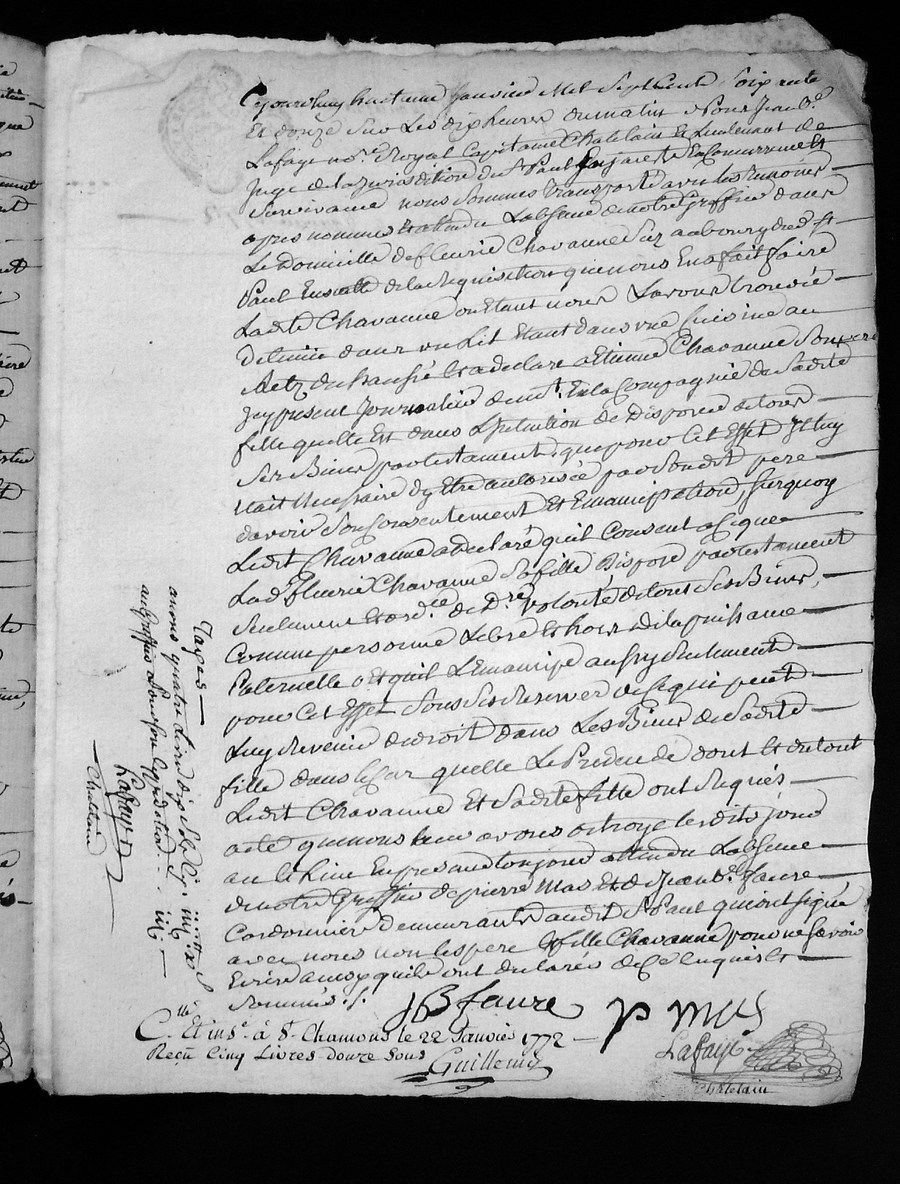 Cejourdhuy huitieme Janvier Mil Sept Cent Soixante
Et douze Sur Les dix heures du matin Nous Jean Bte
Lafaye nore Royal Capitaine Chatelain Et Lieutenant de
Juge de la Jurisdiction de St Paul En Jarest En Concurrence Et
Survivance nous Sommes transporté avec les temoins
apres nommes Et attendu Labsence de notre Greffier dans
Le Domicille de fleurie Chavanne Size au bourg dud St
Paul Ensuitte de la Requisition que nous En a fait faire
Ladite Chavanne ou Etant nous Lavons trouvée
detenüe dans un Lit Etant dans une Cuisine au
Retz du chaussé Et a declaré a Etienne Chavanne Son pere
icy present Journalier demt. En la Compagnie de Sadite
fille quelle Est dans Lintention de Disposer de tous
Ses Biens par testament, que pour Cet Effet Il luy
Etait Necessaire dy Etre autorisée par Sondit pere
davoir Son Consentement Et Emancipation, Surquoy
Ledit Chavanne a declaré quil Consent a Ceque
Lade fleurie Chavanne Sa fille Dispose par testament
Seulement Et ordce de Dre volonté de tous Ses Biens,
Comme personne Libre Et hors de la puissance
Paternelle Et quil Lemancipe aussy Seulement
pour Cet Effet Sous Ses Reserves de Ce qui peut
Luy Revenir de droit dans Les Biens de Sadite
fille dans le Cas quelle Le Predecede dont Et du tout
Ledit Chavanne Et Sadite fille ont Requis
acte que nous leur avons octroyé lesdits jour
an Et Lieu En presence toujours attendu Labsence
de notre Greffier de pierre Mas Et de Jean Bte faure
Cordonnier demeurants audit St Paul qui ont signé
avec nous non les pere & fille Chavanne pour ne Savoir
Ecrire ainsy quils ont declarés de Ce Enquis Et
Sommés ./.
JB faure P MAS
Lafaye
Chatelain
Cllé Et insé. à St. Chamons le 22 Janvier 1772
Reçû Cinq Livres douze Sous
Guillemin
Taxes
avons quatre Livres dix Sols Cy
au Greffier pour Son Expedition
Lafaye
Chatelain